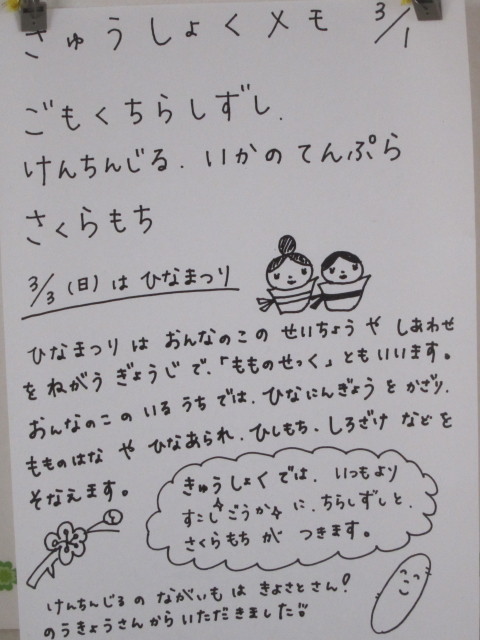 きゅうしょくメモ 3/1
ごもくちらしずし.
けんちんじる. いかのてんぷら
さくらもち
3/3(日)は ひなまつり
ひなまつり は おんなのこの せいちょう や しあわせ
を ねがう ぎょうじで、「もものせっく」ともいいます。
おんなのこの いる うちでは. ひなにんぎょうを かざり.
もものはな や ひなあられ. ひしもち. しろざけ などを
そなえます。
きゅうしょくでは. いつもより
すこしごうかに. ちらしずしと.
さくらもち が つきます。
けんちんじるの ながいも は きよさとさん!
のうきょうさんからいただきました!!